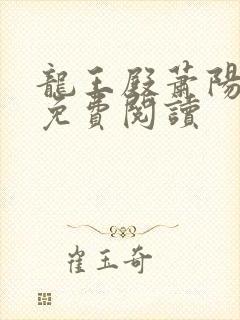 龍王殿蕭陽
免費閱讀
崔玉奇